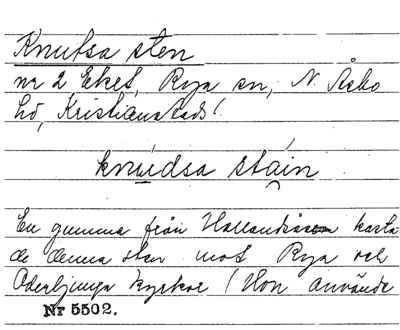 Knutsa sten
nr 2 Eket, Rya sn, N. Åsbo
hd, Kristianstads l.
knudsa stain
En gumma från Hallandsåsen kasta
de denna sten mot Rya och
Oderljunga kyrkor (Hon använde
Nr 5502.